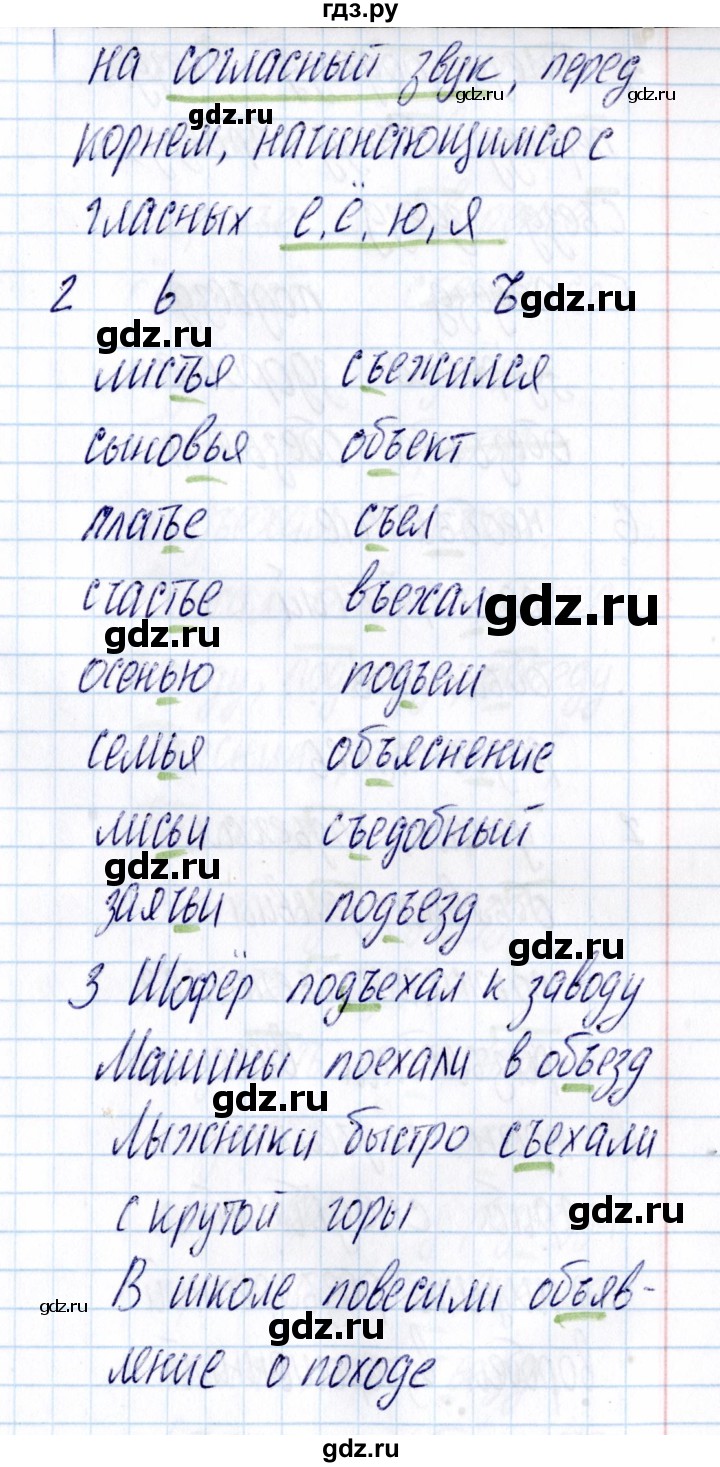 гдз.ру
на согласный звук, перед
gdz.ru
gdz.ru
корнем, начинающимся с
гласных е, ё, ю, я
2 ь ъ
gdz.ru
gdz.ru
листья съежился
сыновья объект
платье съел
счастье въехал
gdz.ru
gdz.ru
осенью подъем
семья объяснение
лисьи съедобный
gdz.ru
заячьи подъезд
gdz.ru
3 Шофёр подъехал к заводу
Машины поехали в объезд
gdz.ru
Лыжники быстро съехали
с крутой горы
gdz.ru
В школе повесили объяв-
gdz.ru
gdz.ru
ление о походе
gdz.ru